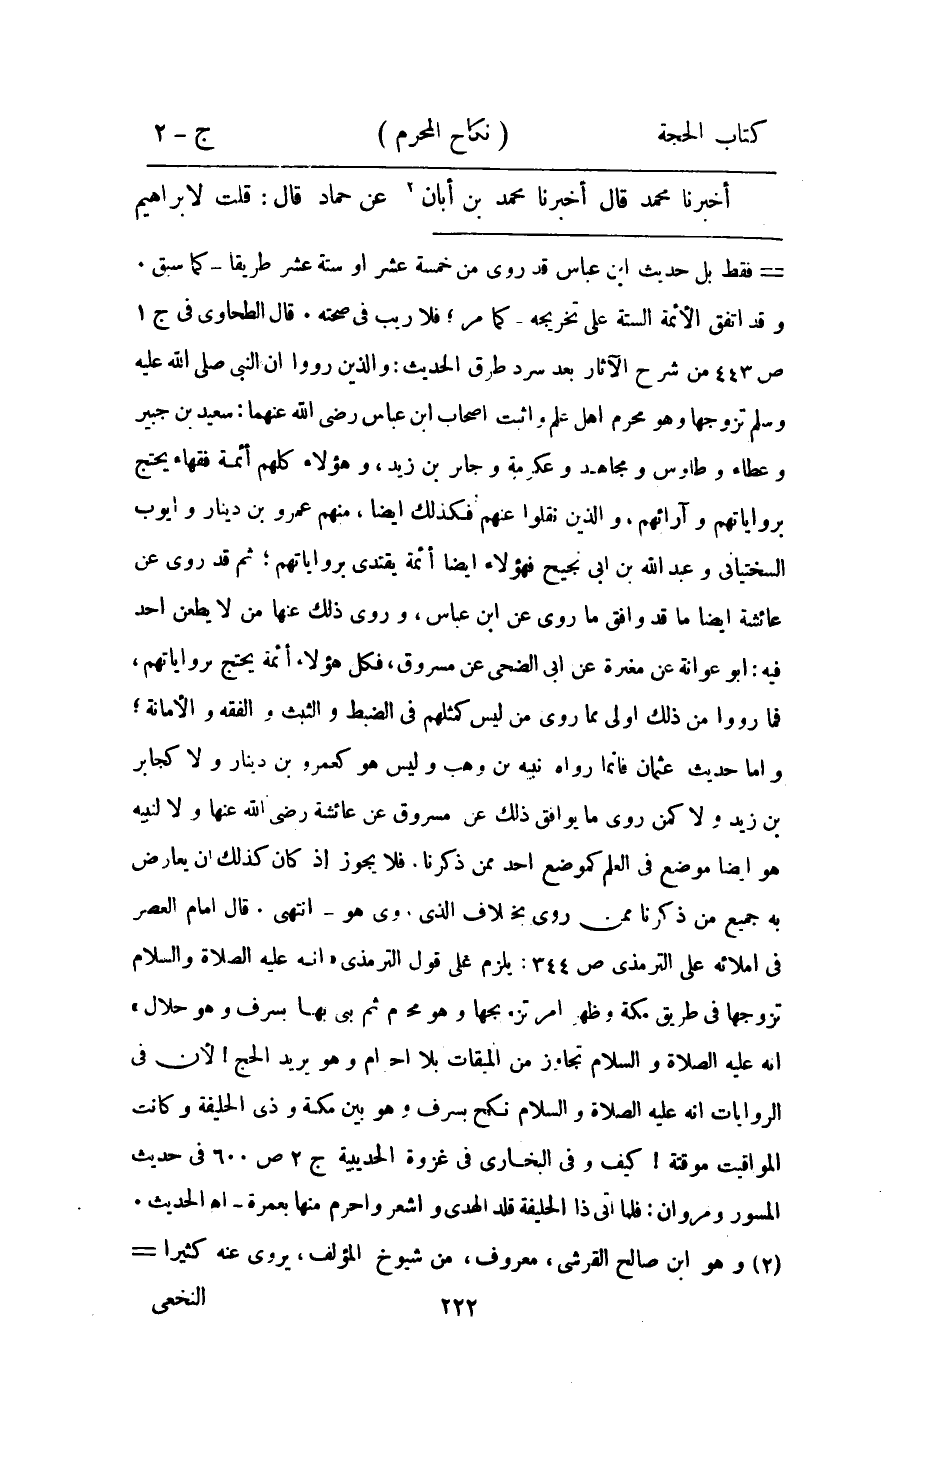 كتاب الحجة ( نكاح المحرم ) ج – ٢
أخبرنا محمد قال أخبرنا محمد بن أبان ٢ عن حماد قال : قلت لابراهيم
== فقط بل حديث ابن عباس قد روى من خمسة عشر او ستة عشر طريقا ـ كما سبق ٠
و قد اتفق الأئمة الستة على تخريجه ـ كما مر ؛ فلا ريب فى صحته ٠ قال الطحاوى فى ج ١
ص ٤٤٣ من شرح الآثار بعد سرد طرق الحديث : والذين رووا ان النبى صلى الله عليه
وسلم تزوجها وهو محرم اهل علم و اثبت اصحاب ابن عباس رضى الله عنهما : سعيد بن جبير
و عطاء و طاوس و مجاهد و عكرمة و جابر بن زيد ، و هؤلاء كلهم أئمة فقهاء يحتج
برواياتهم و آرائهم ، و الذين نقلوا عنهم فكذلك ايضا ، منهم عمرو بن دينار و ايوب
السختيانى و عبد الله بن ابى نجيح فهؤلاء ايضا أئمة يقتدى برواياتهم ؛ ثم قد روى عن
عائشة ايضا ما قد وافق ما روى عن ابن عباس ، و روى ذلك عنها من لا يطعن احد
فيه : ابو عوانة عن مغيرة عن ابى الضحى عن مسروق ، فكل هؤلاء أئمة يحتج برواياتهم ،
فما رووا من ذلك اولى مما روى من ليس كمثلهم فى الضبط و الثبت و الفقه و الأمانة ؛
و اما حديث عثمان فانما رواه نبيه بن وهب و ليس هو كعمرو بن دينار و لا كجابر
بن زيد و لا كمن روى ما يوافق ذلك عن مسروق عن عائشة رضى الله عنها و لا لنبيه
هو ايضا موضع فى العلم كموضع احد ممن ذكرنا . فلا يجوز إذ كان كذلك ان يعارض
به جميع من ذكرنا ممن روى بخلاف الذى روى هو ـ انتهى ٠ قال امام العصر
فى املائه على الترمذى ص ٣٤٤ : يلزم على قول الترمذى « انه عليه الصلاة والسلام
تزوجها فى طريق مكة وظهر امر تزويجها و هو محرم ثم بنى بها بسرف و هو حلال »
انه عليه الصلاة و السلام تجاوز من الميقات بلا احرام و هو يريد الحج ! لأن فى
الروايات انه عليه الصلاة و السلام نكح بسرف و هو بين مكة و ذى الحليفة و كانت
المواقيت موقتة ! كيف و فى البخارى فى غزوة الحديبية ج ٢ ص ٦٠٠ فى حديث
المسور ومروان : فلما اتى ذا الحليفة قلد الهدى و اشعر واحرم منها بعمرة ـ اه الحديث ٠
(٢) و هو ابن صالح القرشى ، معروف ، من شيوخ المؤلف ، يروى عنه كثيرا ==
٢٢٢ النخعى